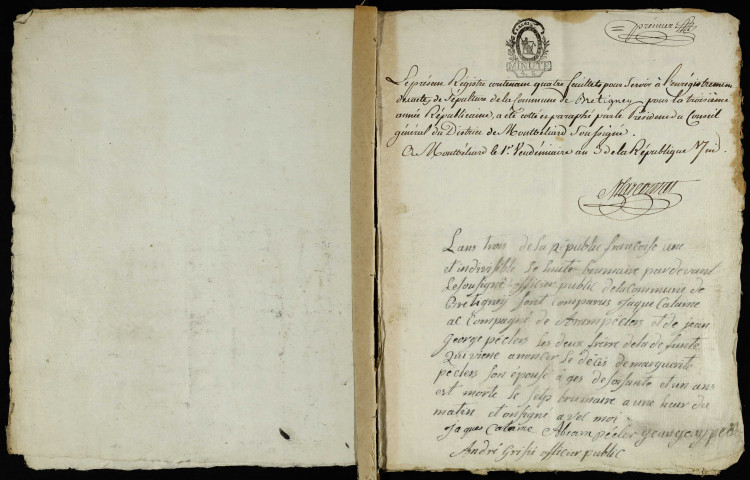 premier
MINUTE
Le présent Registre contenant quatre feuillets pour servir à l'enrégistrement
des actes de Sépulture de la Commune de Bretigney pour la troisième
année Républicaine, a été cotté et paraphé par le Président du Conseil
général du District de Montbéliard Soussigné.
A Montbéliard le 1er Vendémiaire an 3 de la République
L'ans trois de la républic françoise une
et indivisible le huite brumaire pardevant
le Sousigné officier public de la Commune de
Bretigney sont Comparus Jaque Calame
ac Compagné de Abram péclers et de jean
George péclers les deux frere de la defunte
qui viene anoncer le décès de marguerite
péclers son épouse a gés de soisante et un ans
est morte le sept brumaire a une heur du
matin et on signé avec moi
Jaques Calame Abram pécler
André officier public